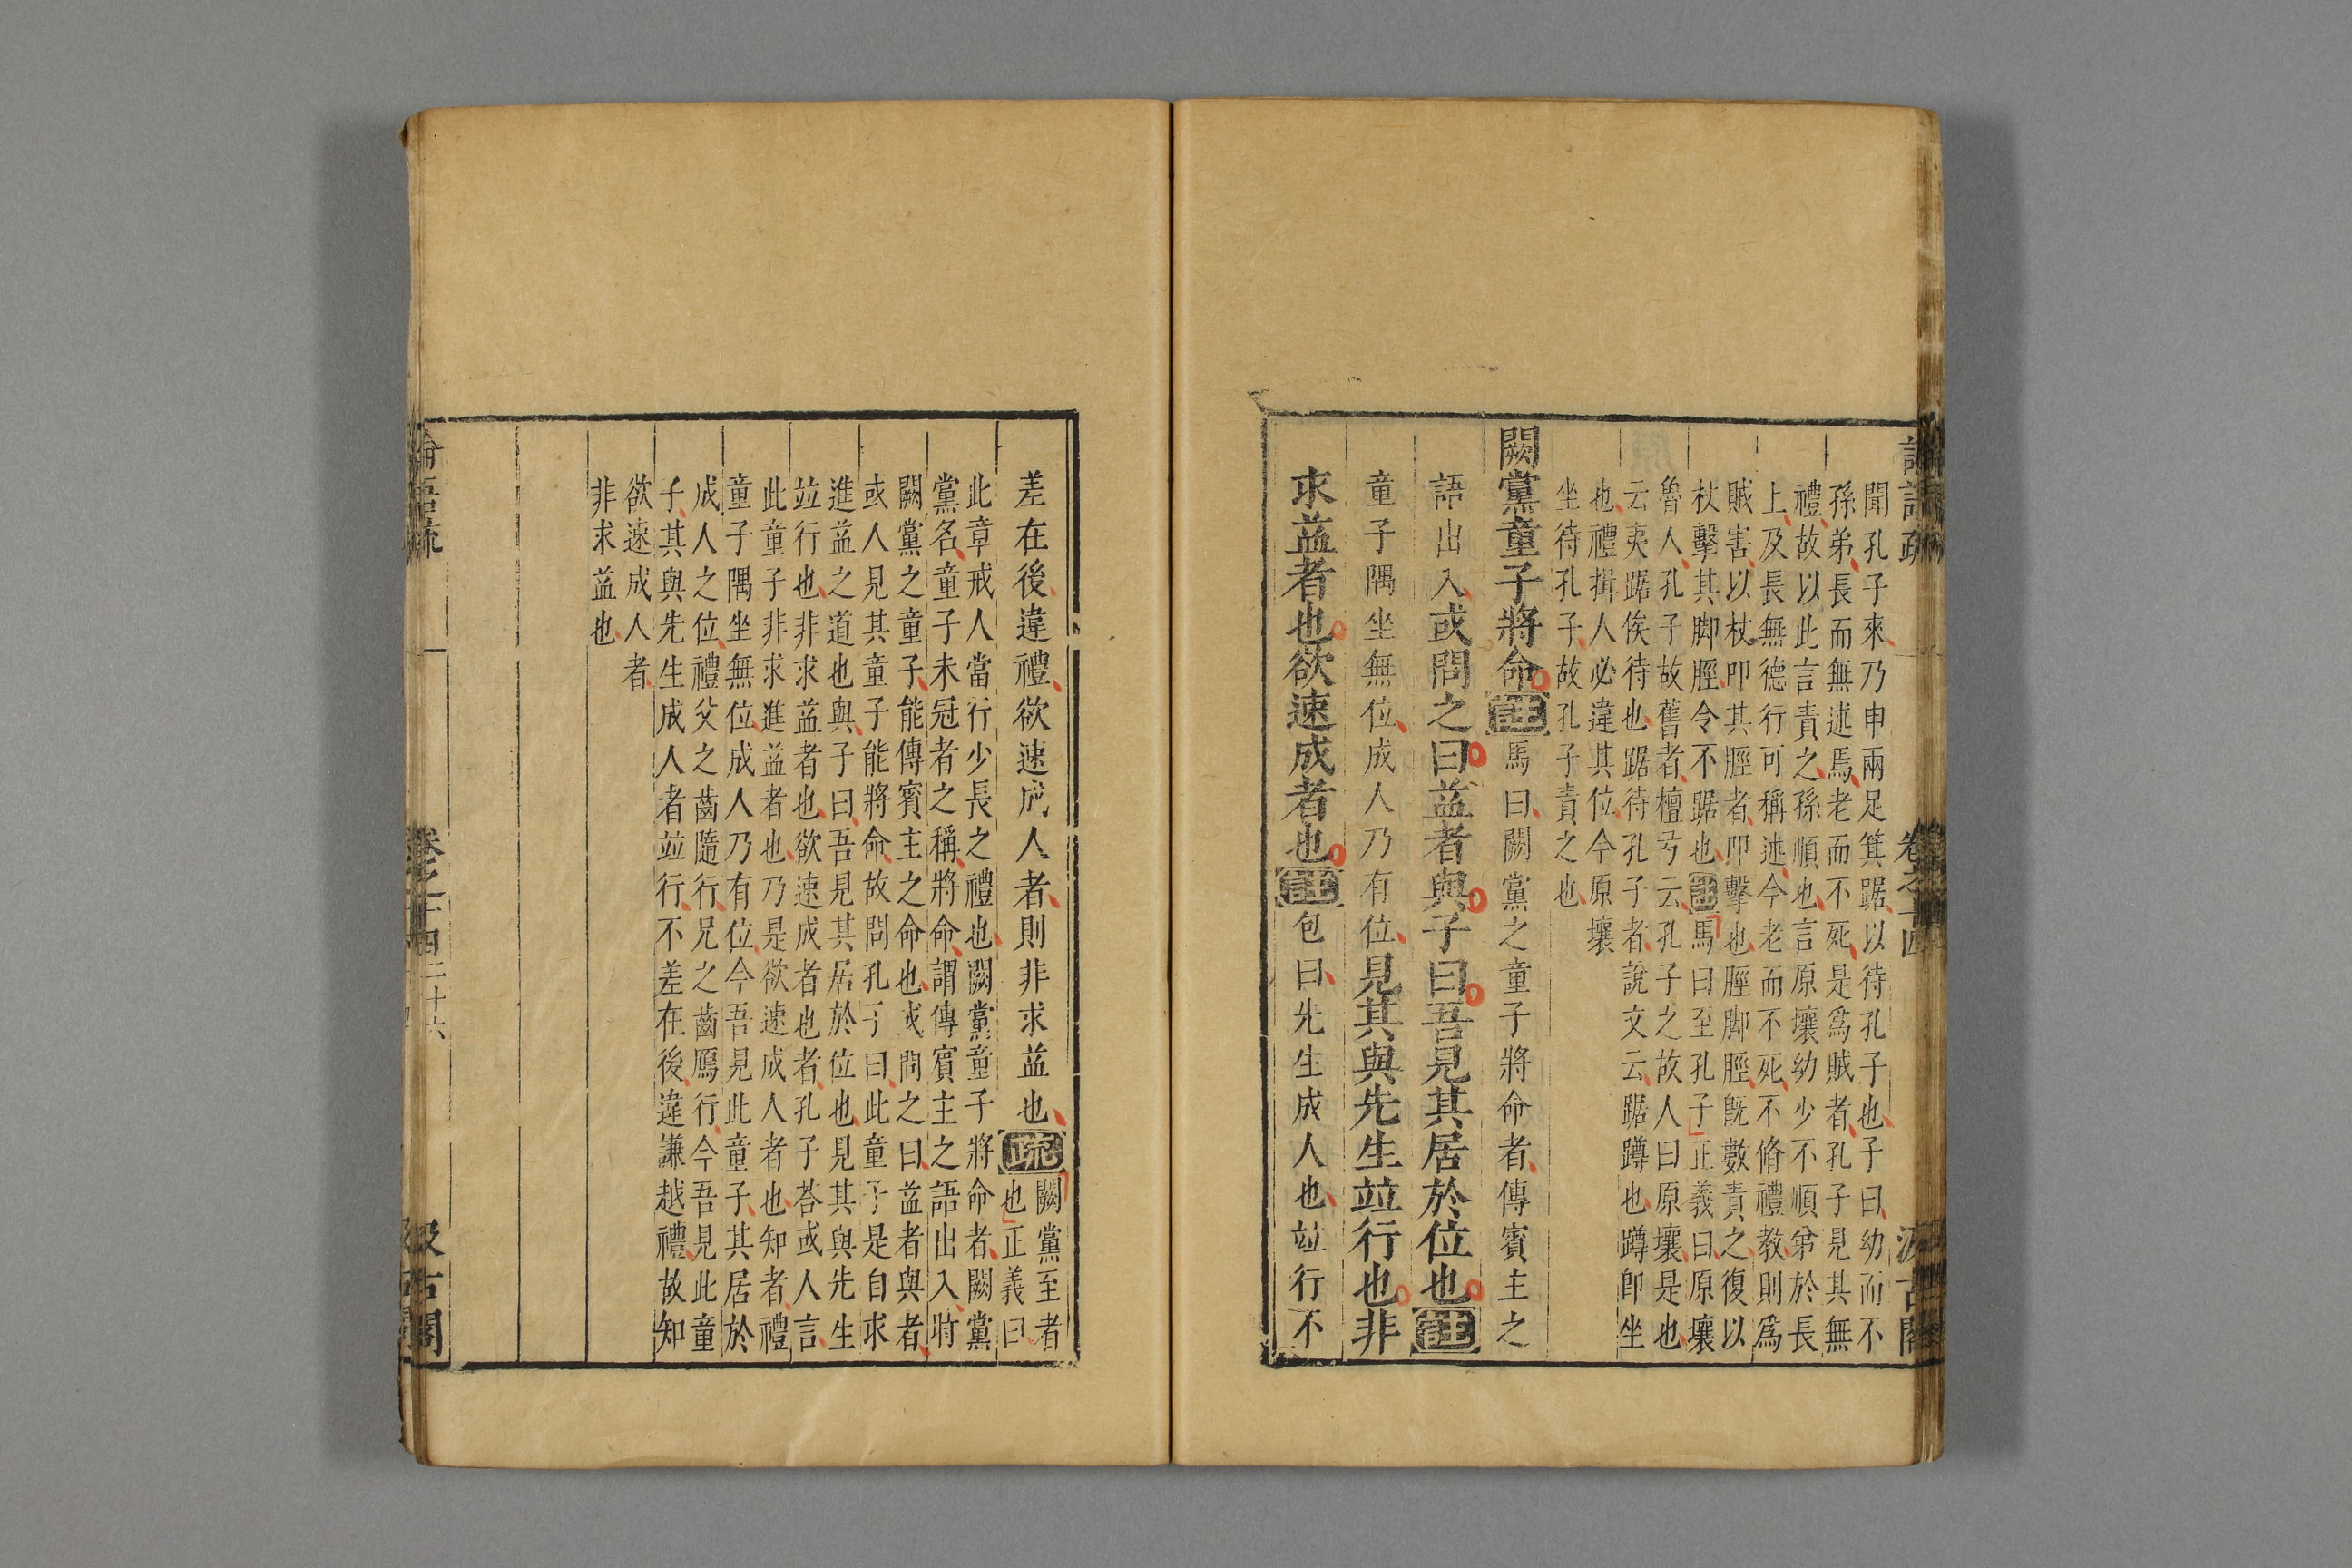 聞孔子來乃申兩足箕踞以待孔子也子曰幼而不
孫弟長而無述焉老而不死是爲賊者孔子見其無
禮故以此言責之孫順也言原壤幼少不順弟於長
上及長無德行可稱述今老而不死不脩禮教則爲
賊害以杖叩其脛者叩擊也脛脚脛既數責之復以
杖擊其脚脛令不踞也馬曰至孔子正義曰原壤
魯人孔子故舊者檀弓云孔子之故人曰原壤是也
云夷踞俟待也踞待孔子者說文云踞蹲也蹲即坐
也禮揖人必違其位今原壤
坐待孔子故孔子責之也
闕黨童子將命註馬曰闕黨之童子將命者傳賓主之
語出入或問之曰益者與子曰吾見其居於位也註
童子隅坐無位成人乃有位見其與先生竝行也非
求益者也欲速成者也註包曰先生成人也竝行不
差在後違禮欲速成人者則非求益也疏闕黨至者
也正義曰
此章戒人當行少長之禮也闕黨童子將命者闕黨
黨名童子未冠者之稱將命謂傳賓主之語出入時
闕黨之童子能傳賓主之命也或問之曰益者與者
或人見其童子能將命故問孔子曰此童子是自求
進益之道也與子曰吾見其居於位也見其與先生
竝行也非求益者也欲速成者也者孔子荅或人言
此童子非求進益者也乃是欲速成人者也知者禮
童子隅坐無位成人乃有位今吾見此童子其居於
成人之位禮父之齒隨行兄之齒鴈行今吾見此童
子其與先生成人者竝行不差在後違謙越禮故知
欲速成人者
非求益也
論語疏 卷之十四 二十六 汲古閣